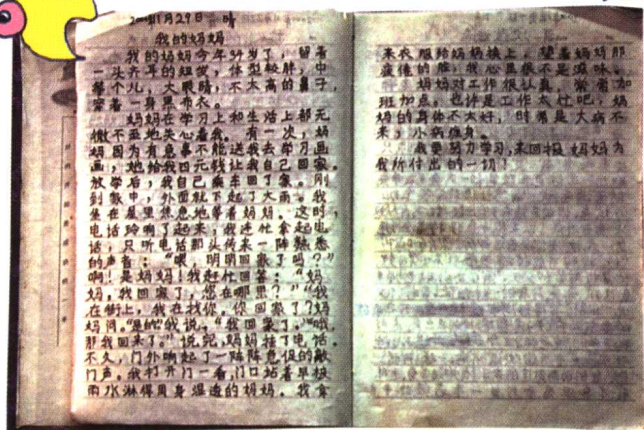 1月29日 晴
我的妈妈
我的妈妈今年37岁了，留着
一头齐耳的短发，体型较胖，中
等个儿，大眼睛，不太高的鼻子，
穿着一身黑布衣。
妈妈在学习上和生活上都无
微不至地关心着我。有一次，妈
妈因为有急事不能送我去学习画
画，她给我四元钱让我自己回家。
放学后，我自己乘车回了家。刚
到家中，外面就下起了大雨。我
坐在屋里焦急地等着妈妈。这时，
电话铃响了起来，我连忙拿起电
话，只听电话那头传来一阵熟悉
的声音：“喂，明明回家了吗？”
啊！是妈妈！我赶忙回答：“妈
妈，我回家了，您在哪里？”“我
在街上，我在找你。你回家了？”妈
妈问。“是的”我说，“我回家了。”“哦，
那我回来了。”说完，妈妈挂了电话。
不久，门外响起了一阵阵急促的敲
门声。我打开门一看，门口站着早被
雨水淋得周身湿透的妈妈。我拿
来衣服给妈妈换上，望着妈妈那
疲倦的脸，我心里很不是滋味。
妈妈对工作很认真，常常加
班加点。也许是工作太忙吧，妈
妈的身体不太好，时常是大病不
来，小病缠身。
我要努力学习，来回报妈妈为
我所付出的一切！